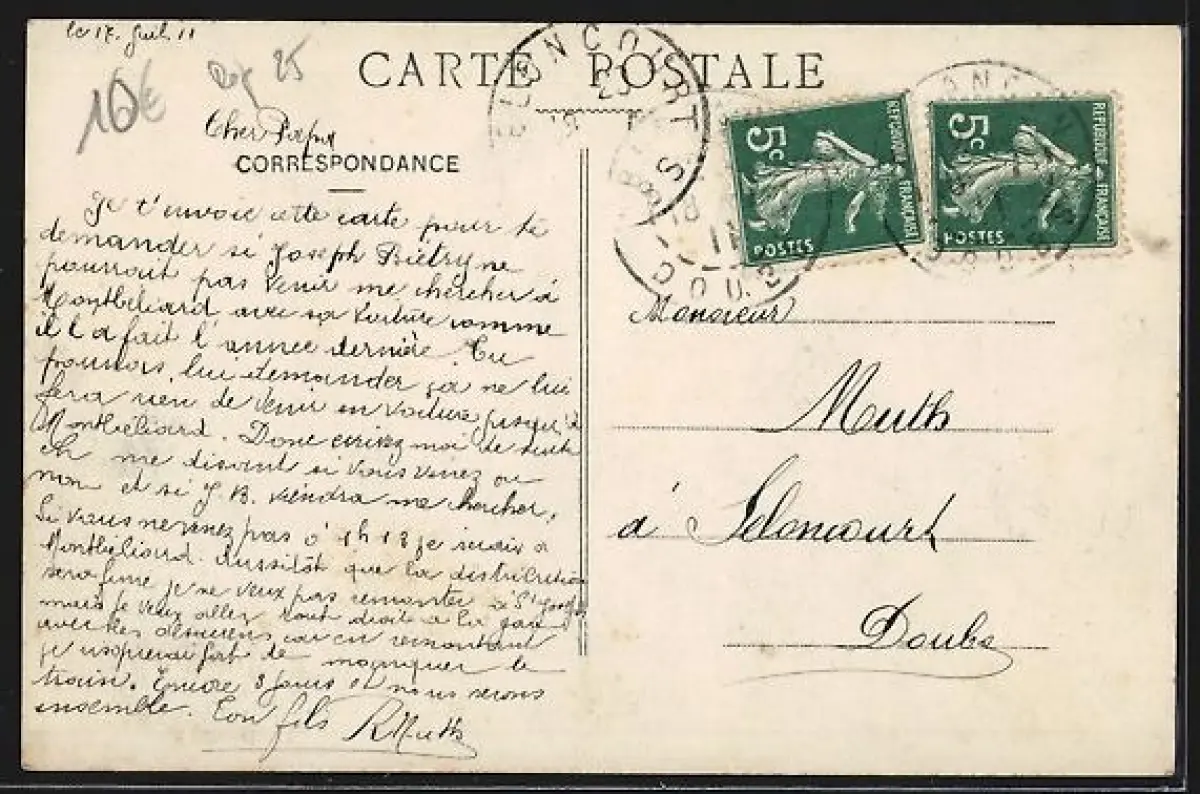 le 17. Juil 11
10€
25
CARTE POSTALE
Cher Papa
CORRESPONDANCE
Je t'envoie cette carte pour te
demander si Joseph Piétry ne
pourrait pas venir me chercher à
Montbéliard avec sa voiture comme
il l a fait l'année dernière. Tu
pourrais lui demander ça ne lui
fera rien de venir en voiture jusqu'à
Montbéliard. Donc écrivez moi de suite
en me disant si vous venez ou
non et si J. B. viendra me chercher.
Si vous ne venez pas à 1h 18 je serais à
Montbéliard. Aussitôt que la distribution
sera finie je ne veux pas remonter à St Joseph
mais je veux aller tout droite à la gare
avec les car en remontant
je risquerai fort de manquer le
train. Encore 8 jours et nous serons
ensemble. Ton fils RMuth
SELONCOURT
DOUBS
5c
REPUBLIQUE FRANÇAISE
POSTES
5c
REPUBLIQUE FRANÇAISE
POSTES
Monsieur
Muth
à Seloncourt
Doubs